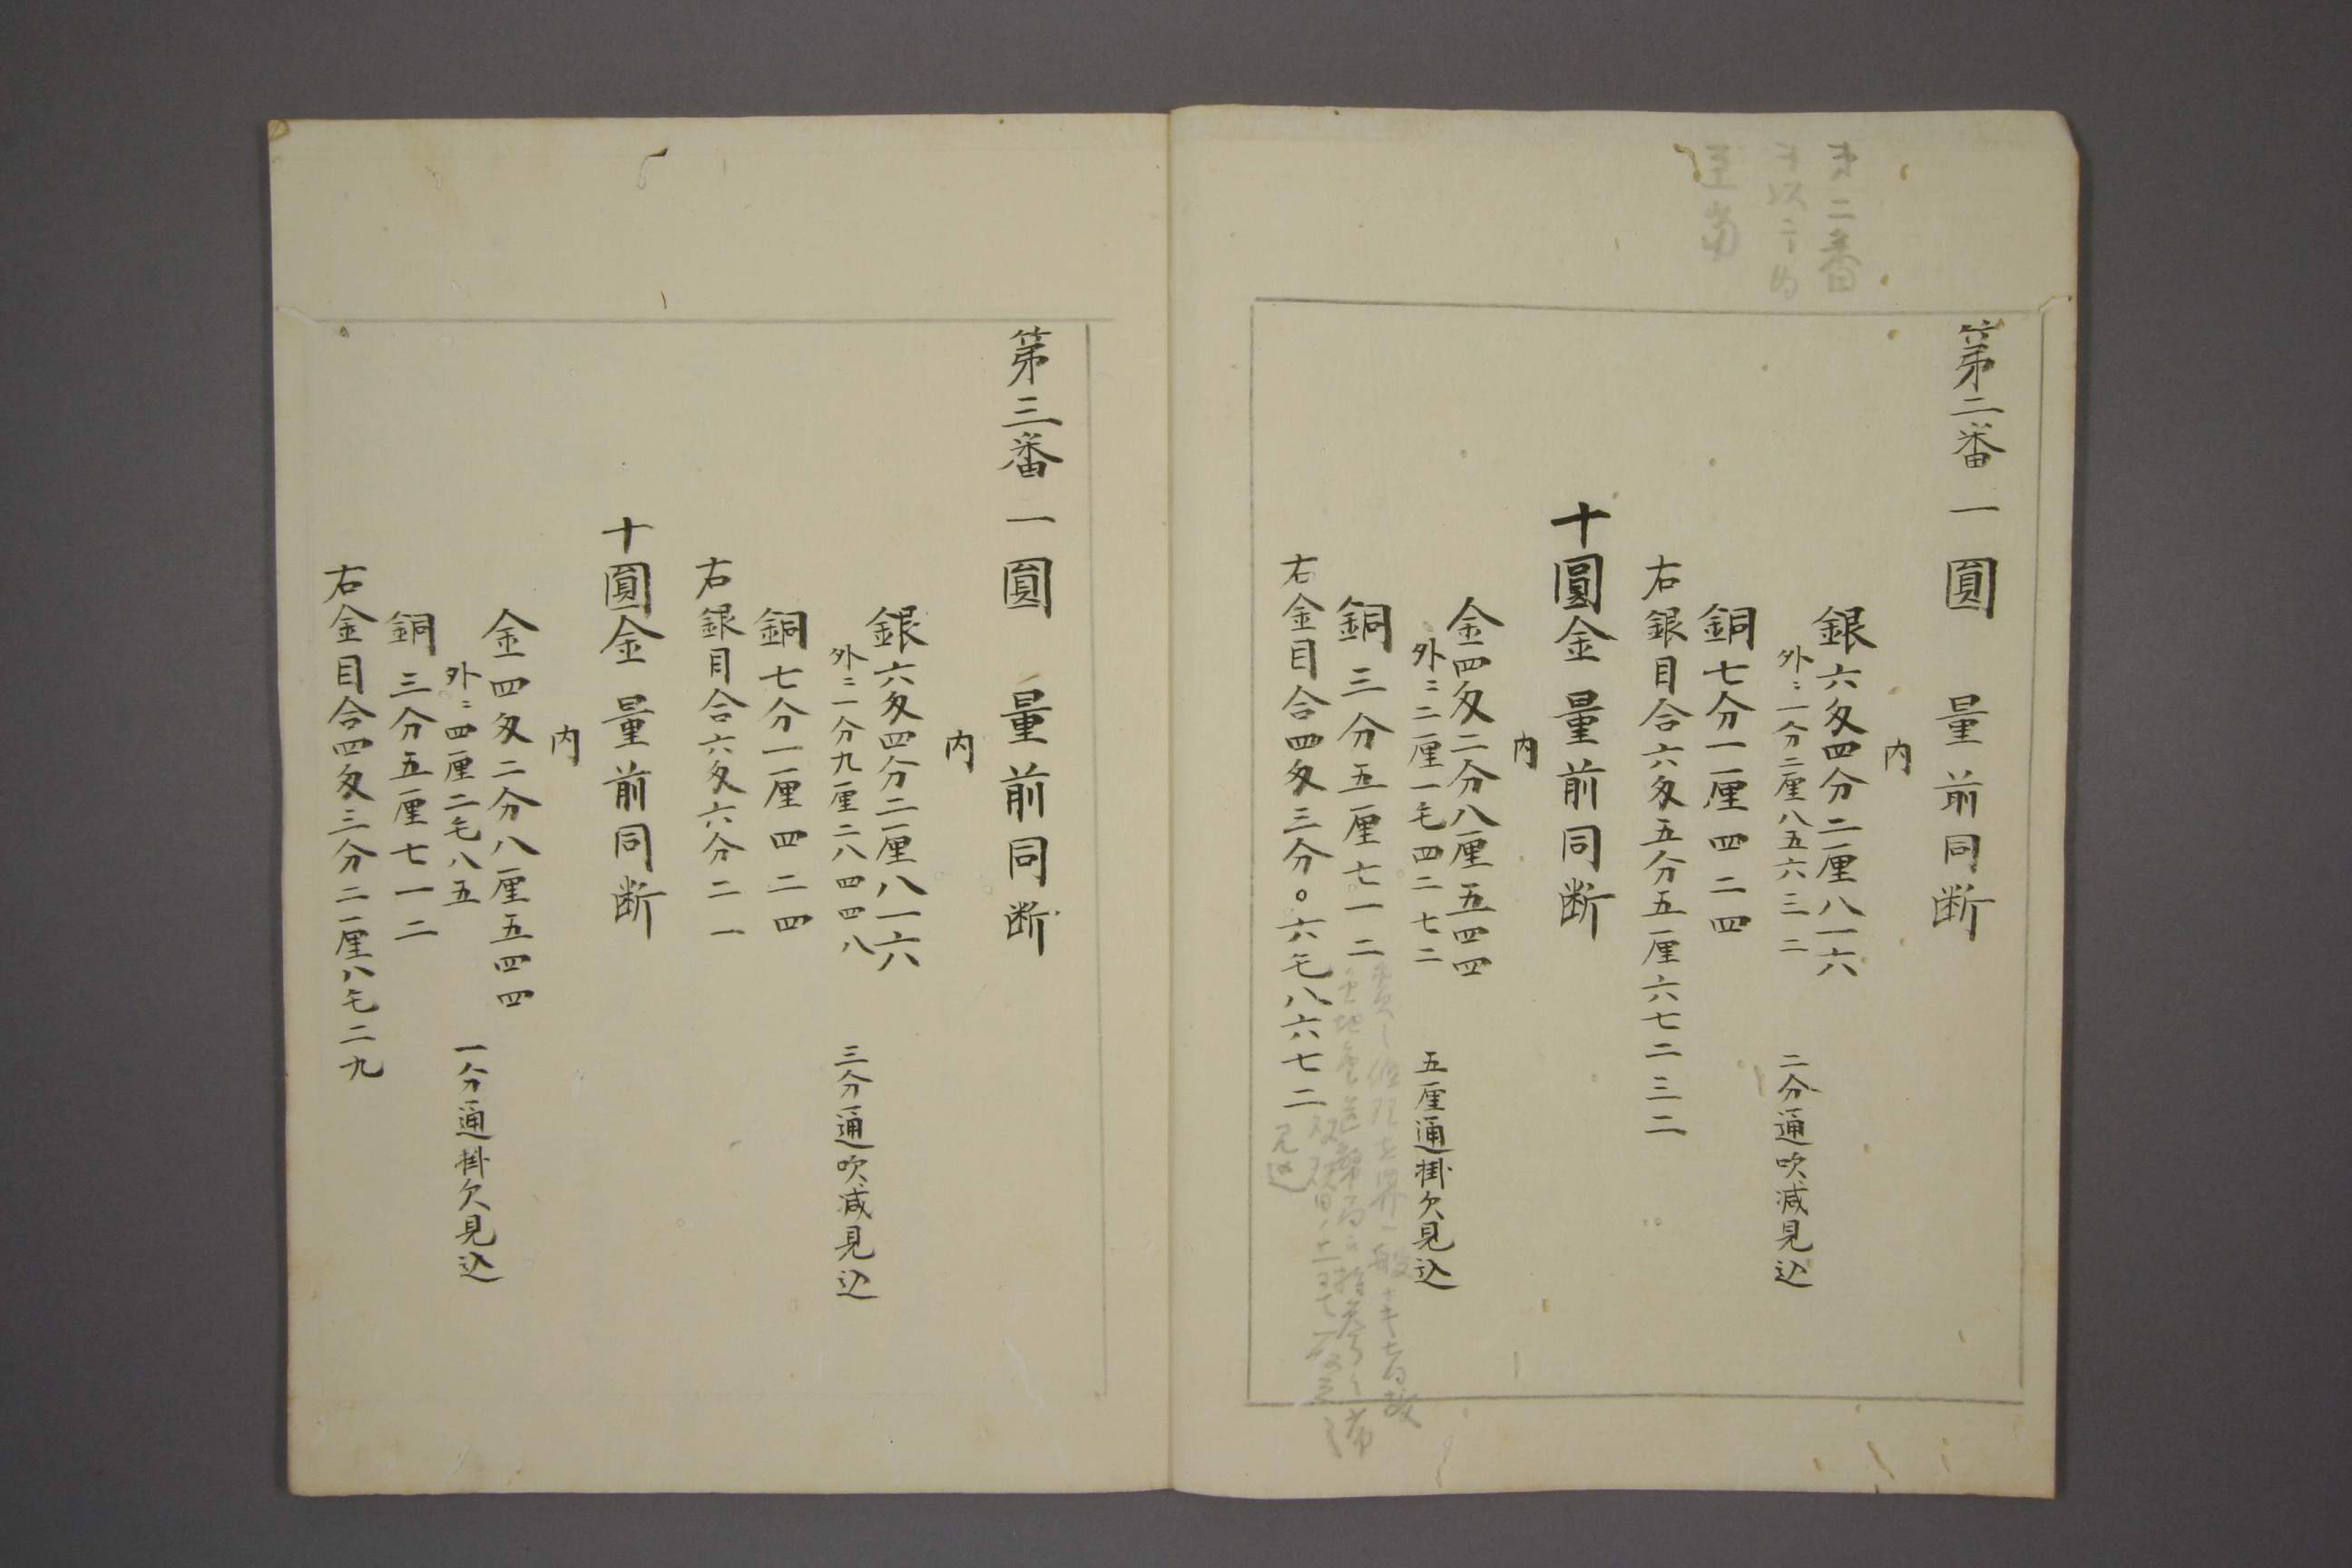 第二番一圓　量前同断
内
銀六匁四分二厘八一六
外ニ一分二厘八五六三二　二分通吹減見込
銅七分一厘四二四
右銀目合六匁五分五厘六七二三二
十圓金量前同断
内
金四匁二分八厘五四四
外ニ二厘一毛四二七二　五厘通掛欠見込
銅三分五厘七一二
右金目合四匁三分〇六毛八六七二
第三番一圓　量前同断
内
銀六匁四分二厘八一六
外ニ一分九厘二八四四八　三分通吹減見込
銅七分一厘四二四
右銀目合六匁六分二一
十圓金　量前同断
内
金四匁二分八厘五四四
外ニ四厘二毛八五　一分通掛欠見込
銅三分五厘七一二
右金目合四匁三分二厘八毛二九